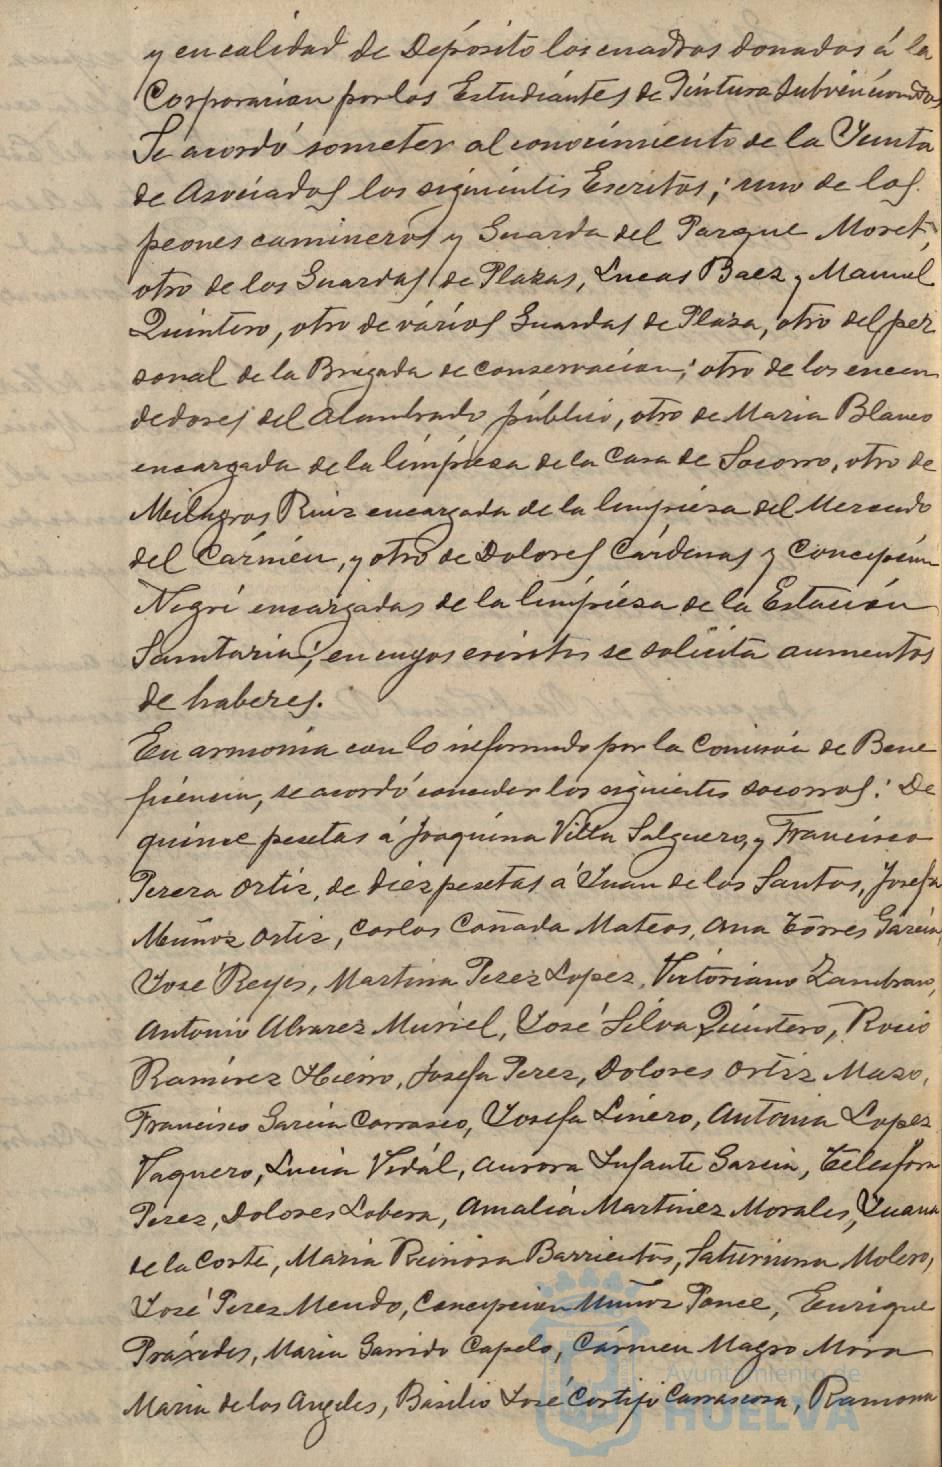 y en calidad de Depósito los cuadros donados á la
Corporacion por los Estudiantes de Pintura Subvencionados
Se acordó someter al conocimiento de la Yunta
de Asociados los siguientes Escritos; uno de los
peones camineros y Guarda del Parque Moret,
otro de los Guardas de Plazas, Lucas Baez y Manuel
Quintero, otro de vários Guardas de Plaza, otro del per
sonal de la Brigada de conservacion; otro de los encen
dedores del Alumbrado público, otro de Maria Blanco
encargada de la limpieza de la Casa de Socorro, otro de
Milagros Ruiz encargada de la limpieza del Mercado
del Cármen, y otro de Dolores Cárdenas y Concepcion
Negri encargadas de la limpieza de la Estación
Sanitaria; en cuyos escritos se solicita aumentos
de haberes.
En armonia con lo informado por la Comisión de Bene
ficencia, se acordó conceder los siguientes socorros: De
quince pesetas á Joaquina Villa Salguero, y Francisco
Perera Ortiz, de diez pesetas á Yuan de los Santos, Josefa
Muñoz Ortiz, Carlos Cañada Mateos, Ana Torres García,
Yosé Reyes, Martina Perez Lopez, Victoriano Zambrano,
Antonio Alvarez Muriel, Yosé Silva Quintero, Rocio
Ramirez Hierro, Josefa Perez, Dolores Ortiz Mazo,
Francisco Garcia Carrasco, Yosefa Liñero, Antonia Lopez
Vaquero, Lucia Vidál, Aurora Infante Garcia, Telesfora
Perez, Dolores Lobera, Amalia Martinez Morales, Yuana
de la Corte, Maria Reinosa Barrientos, Saturnina Molero,
Yosé Perez Mendo, Concepcion Muñoz Ponce, Enrique
Práxedes, Maria Garrido Capelo, Cármen Magro Mora
Maria de los Angeles, Basilio José Cortijo Carrascosa, Ramona
Ayuntamiento de
HUELVA